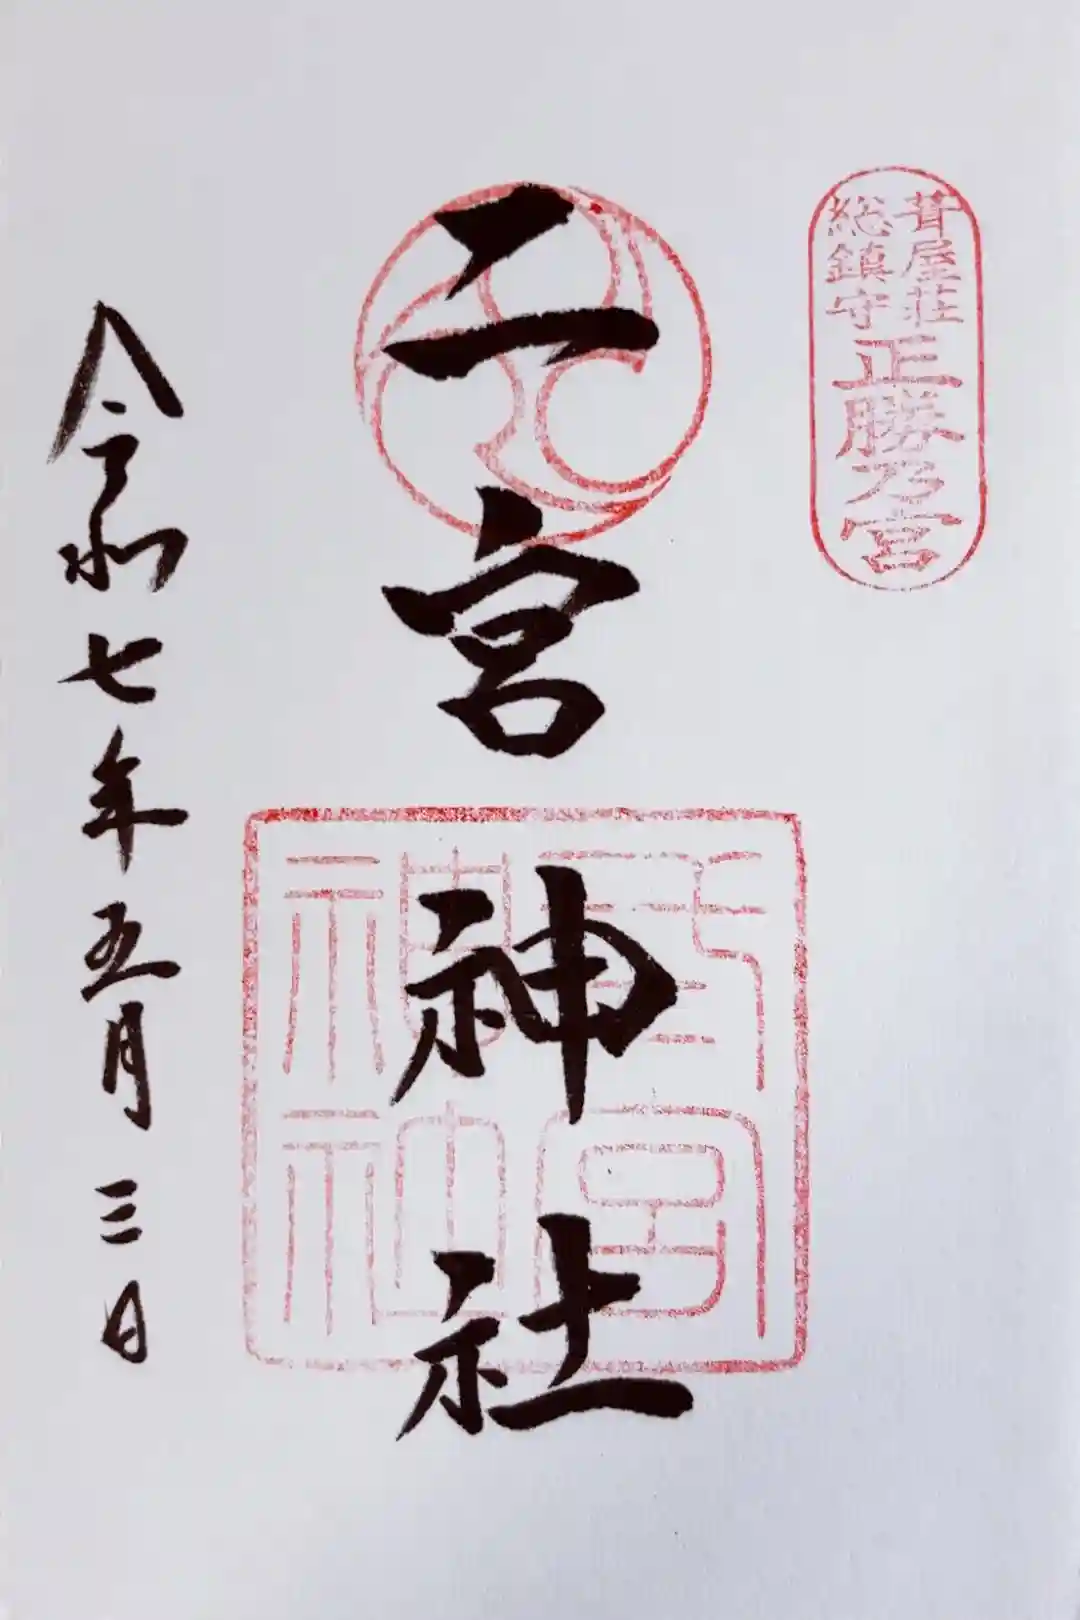 葺屋荘
総鎮守
正勝乃宮
二宮神社
令和七年五月三日